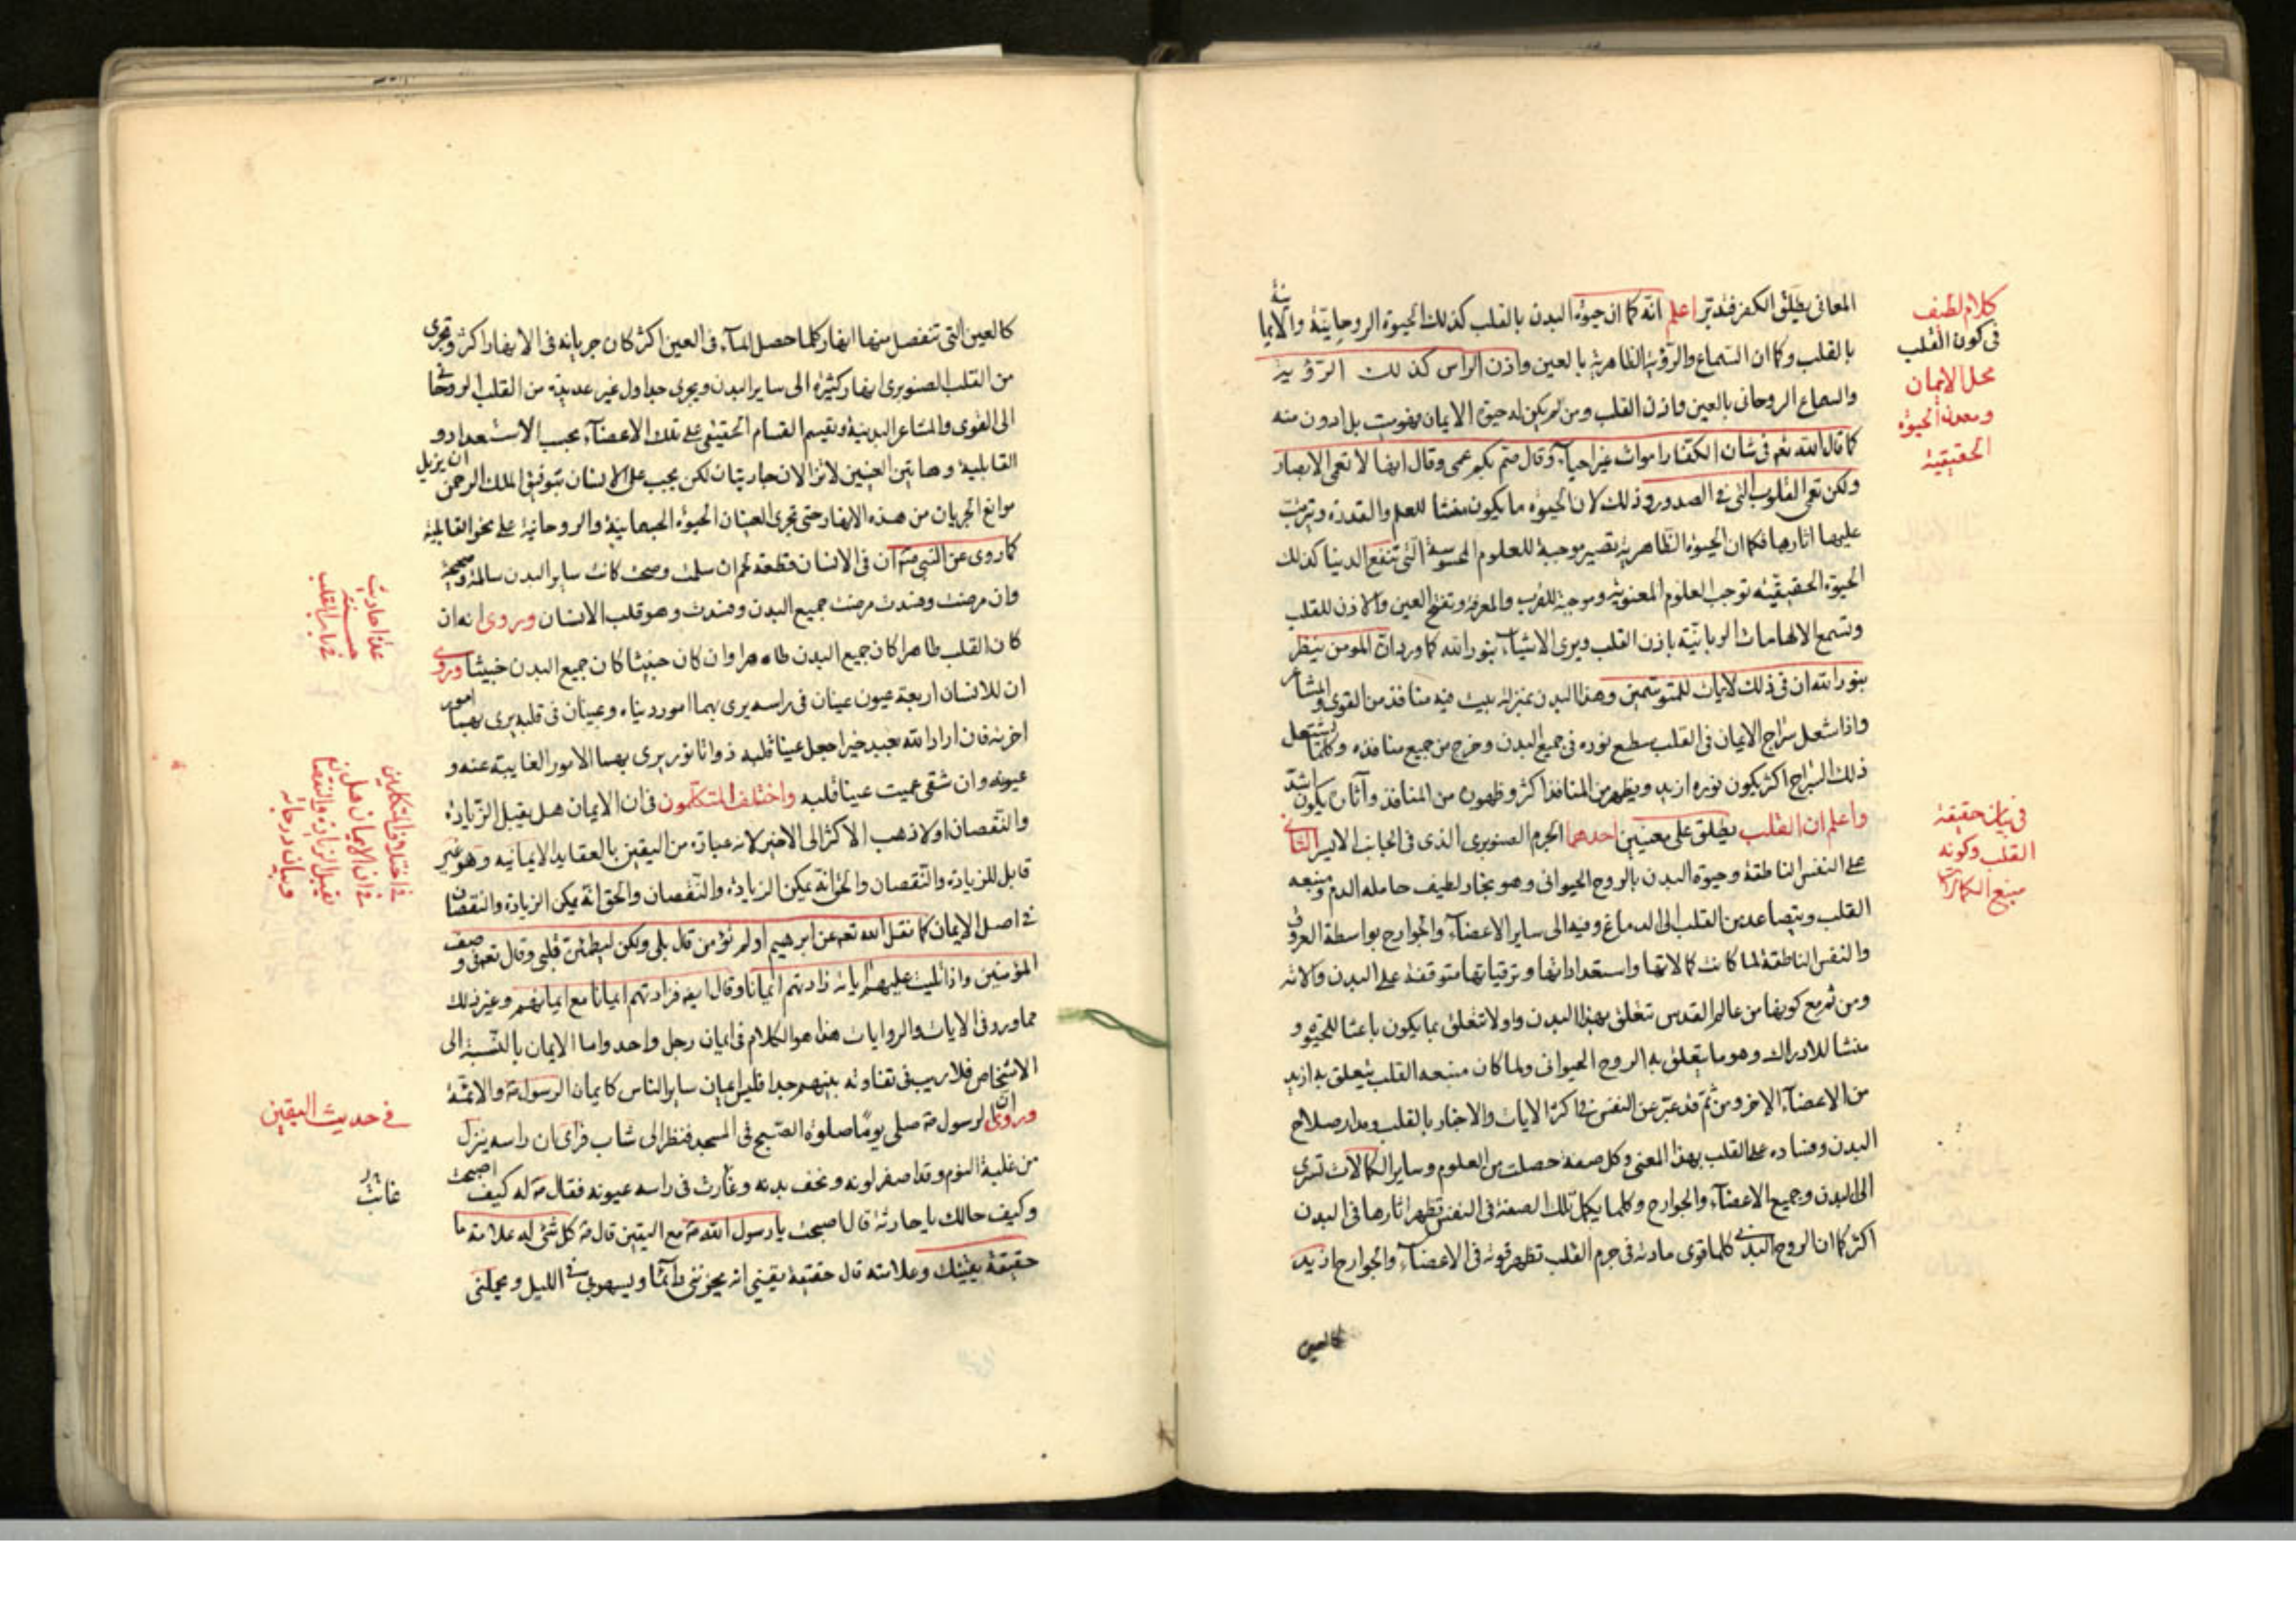 المعانى يطلق الكفر فتدبر اعلم انه كما ان حيوة البدن بالقلب كذلك الحيوة الروحانية والايمانية
بالقلب وكما ان السماع والرؤية الظاهرية بالعين واذن الراس كذلك الرؤية
والسماع الروحانى بالعين واذن القلب ومن لم يكن له حيوة الايمان فهو ميت بل ادون منه
كما قال الله تعم فى شان الكفار اموات غير احياء وقال صم بكم عمى وقال ايضا لا تعمى الابصار
ولكن تعمى القلوب التى فى الصدور وذلك لان الحيوة ما يكون منشا للعلم والقدرة وتترتب
عليها اثارها فكما ان الحيوة الظاهرية تصير موجبة للعلوم المحسوسة التى تنفع الدنيا كذلك
الحيوة الحقيقية توجب العلوم المعنوية وموجبة للقرب والمعرفة وتفتح العين والاذن للقلب
وتسمع الالهامات الربانية باذن القلب ويرى الاشياء بنور الله كما ورد ان المومن ينظر
بنور الله ان فى ذلك لايات للمتوسمين وهذا البدن بمنزلة بيت فيه منافذ من القوى والمشاعر
واذا شعل سراج الايمان فى القلب سطع نوره فى جميع البدن وخرج من جميع منافذه وكلما يشتعل
ذلك السراج اكثر يكون نوره ازيد ويظهر من المنافذ اكثر وظهوره من المنافذ وآثاره يكون اشد
واعلم ان القلب يطلق على معنيين احدهما الجرم الصنوبرى الذى فى الجانب الايسر الثانى
على النفس الناطقة وحيوة البدن بالروح الحيوانى وهو بخار لطيف حامله الدم ومنبعه
القلب ويتصاعد من القلب الى الدماغ وفيه الى ساير الاعضاء والجوارح بواسطة العروق
والنفس الناطقة لما كانت كمالاتها واستعداداتها وترقياتها متوقفة على البدن والاته
ومن ثم مع كونها من عالم القدس تتعلق بهذا البدن واولا تتعلق بما يكون باعثا للحيوة و
منشا للادراك وهو ما يتعلق به الروح الحيوانى ولما كان منبعه القلب يتعلق به ازيد
من الاعضاء الاخر ومن ثم قد عبر عن النفس فى اكثر الايات والاخبار بالقلب ومدار صلاح
البدن وفساده على القلب بهذا المعنى وكل صفة حصلت من العلوم وساير الكمالات تسرى
الى البدن وجميع الاعضاء والجوارح وكلما يكمل تلك الصفة فى النفس تظهر اثارها فى البدن
اكثر كما ان الروح البدنى كلما قوى مادته فى جرم القلب تظهر قوته فى الاعضاء والجوارح ازيد
كالعين
كلام لطيف
فى كون القلب
محل الايمان
ومعدن الحيوة
الحقيقية
فى بيان حقيقة
القلب وكونه
منبع الكمالات
كالعين التى تنفصل منها انهار كلما حصل الماء فى العين اكثر كان جريانه فى الانهار اكثر وتجرى
من القلب الصنوبرى انهار كثيرة الى ساير البدن ويجرى جداول غير عديدة من القلب الروحانى
الى القوى والمشاعر البدنية ويقسم القسام الحقيقى على تلك الاعضاء بحسب الاستعداد و
القابلية وهاتين العينين لا تزالان جاريتان لكن يجب على الانسان بتوفيق الملك الرحمن ان يزيل
موانع الجريان من هذه الانهار حتى تجرى العينان الحيوة الجسمانية والروحانية على نحو القابلية
كما روى عن النبى ص ان فى الانسان قطعة لحم ان سلمت وصحت كانت ساير البدن سالمة وصحيحة
وان مرضت وفسدت مرضت جميع البدن وفسدت وهو قلب الانسان وروى انه ان
كان القلب طاهرا كان جميع البدن طاهرا وان كان خبيثا كان جميع البدن خبيثا وروى
ان للانسان اربعة عيون عينان فى راسه يرى بهما امور دنياه وعينان فى قلبه يرى بهما امور
اخرته فان اراد الله بعبد خيرا جعل عينا قلبه ذواتا نور يرى بهما الامور الغايبة عنه و
عيوبه وان شقى عميت عينا قلبه واختلف المتكلمون فى ان الايمان هل يقبل الزيادة
والنقصان او لا ذهب الاكثر الى الاخير لانه عبارة من اليقين بالعقايد الايمانيه وهو غير
قابل للزيادة والنقصان والحق انه يمكن الزيادة والنقصان والحق انه يمكن الزيادة والنقصان
فى اصل الايمان كما نقل الله تعم عن ابرهيم اولم تؤمن قال بلى ولكن ليطمئن قلبى وقال تعم فى وصف
المؤمنين واذا تليت عليهم اياته زادتهم ايمانا وقال ايضا فزادتهم ايمانا مع ايمانهم وغير ذلك
مما ورد فى الايات والروايات هذا هو الكلام فى ايمان رجل واحد واما الايمان بالنسبة الى
الاشخاص فلا ريب فى تفاوته بينهم جدا فليس ايمان ساير الناس كايمان الرسول ص والائمة
وروى ان الرسول ص صلى يوما صلوة الصبح فى المسجد فنظر الى شاب فراى ان راسه ينزل
من غلبة النوم وقد اصفر لونه ونحف بدنه وغارت فى راسه عيونه فقال ص له كيف اصبحت
وكيف حالك يا حارثة قال اصبحت يا رسول الله ص مع اليقين قال ص كل شئ له علامة ما
حقيقة يقينك وعلامته قال حقيقة يقينى انه يحزننى دائما ويسهرنى فى الليل ويجعلنى
عدة احاديث
حسنة
فى باب القلب
فى اختلاف المتكلمين
فى ان الايمان هل
يقبل الزيادة والنقصان
وبيان درجاته
فى حديث اليقين